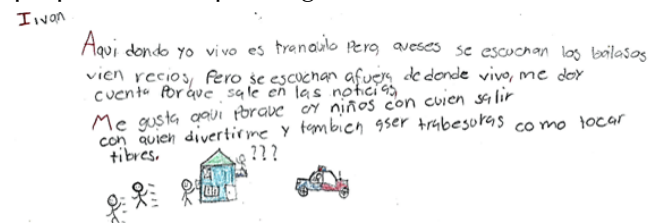 Iivan
Aqui dondo yo vivo es tranquilo Pero aveses se escuchan los balasos
vien recios, Pero se escuchan afuera de donde vivo, me doy
cuenta Porque sale en las noticias
Me gusta aqui Porque oy niños con cuien salir
con quien divertirme y tambien aser trabesuras como tocar
tibres.
???